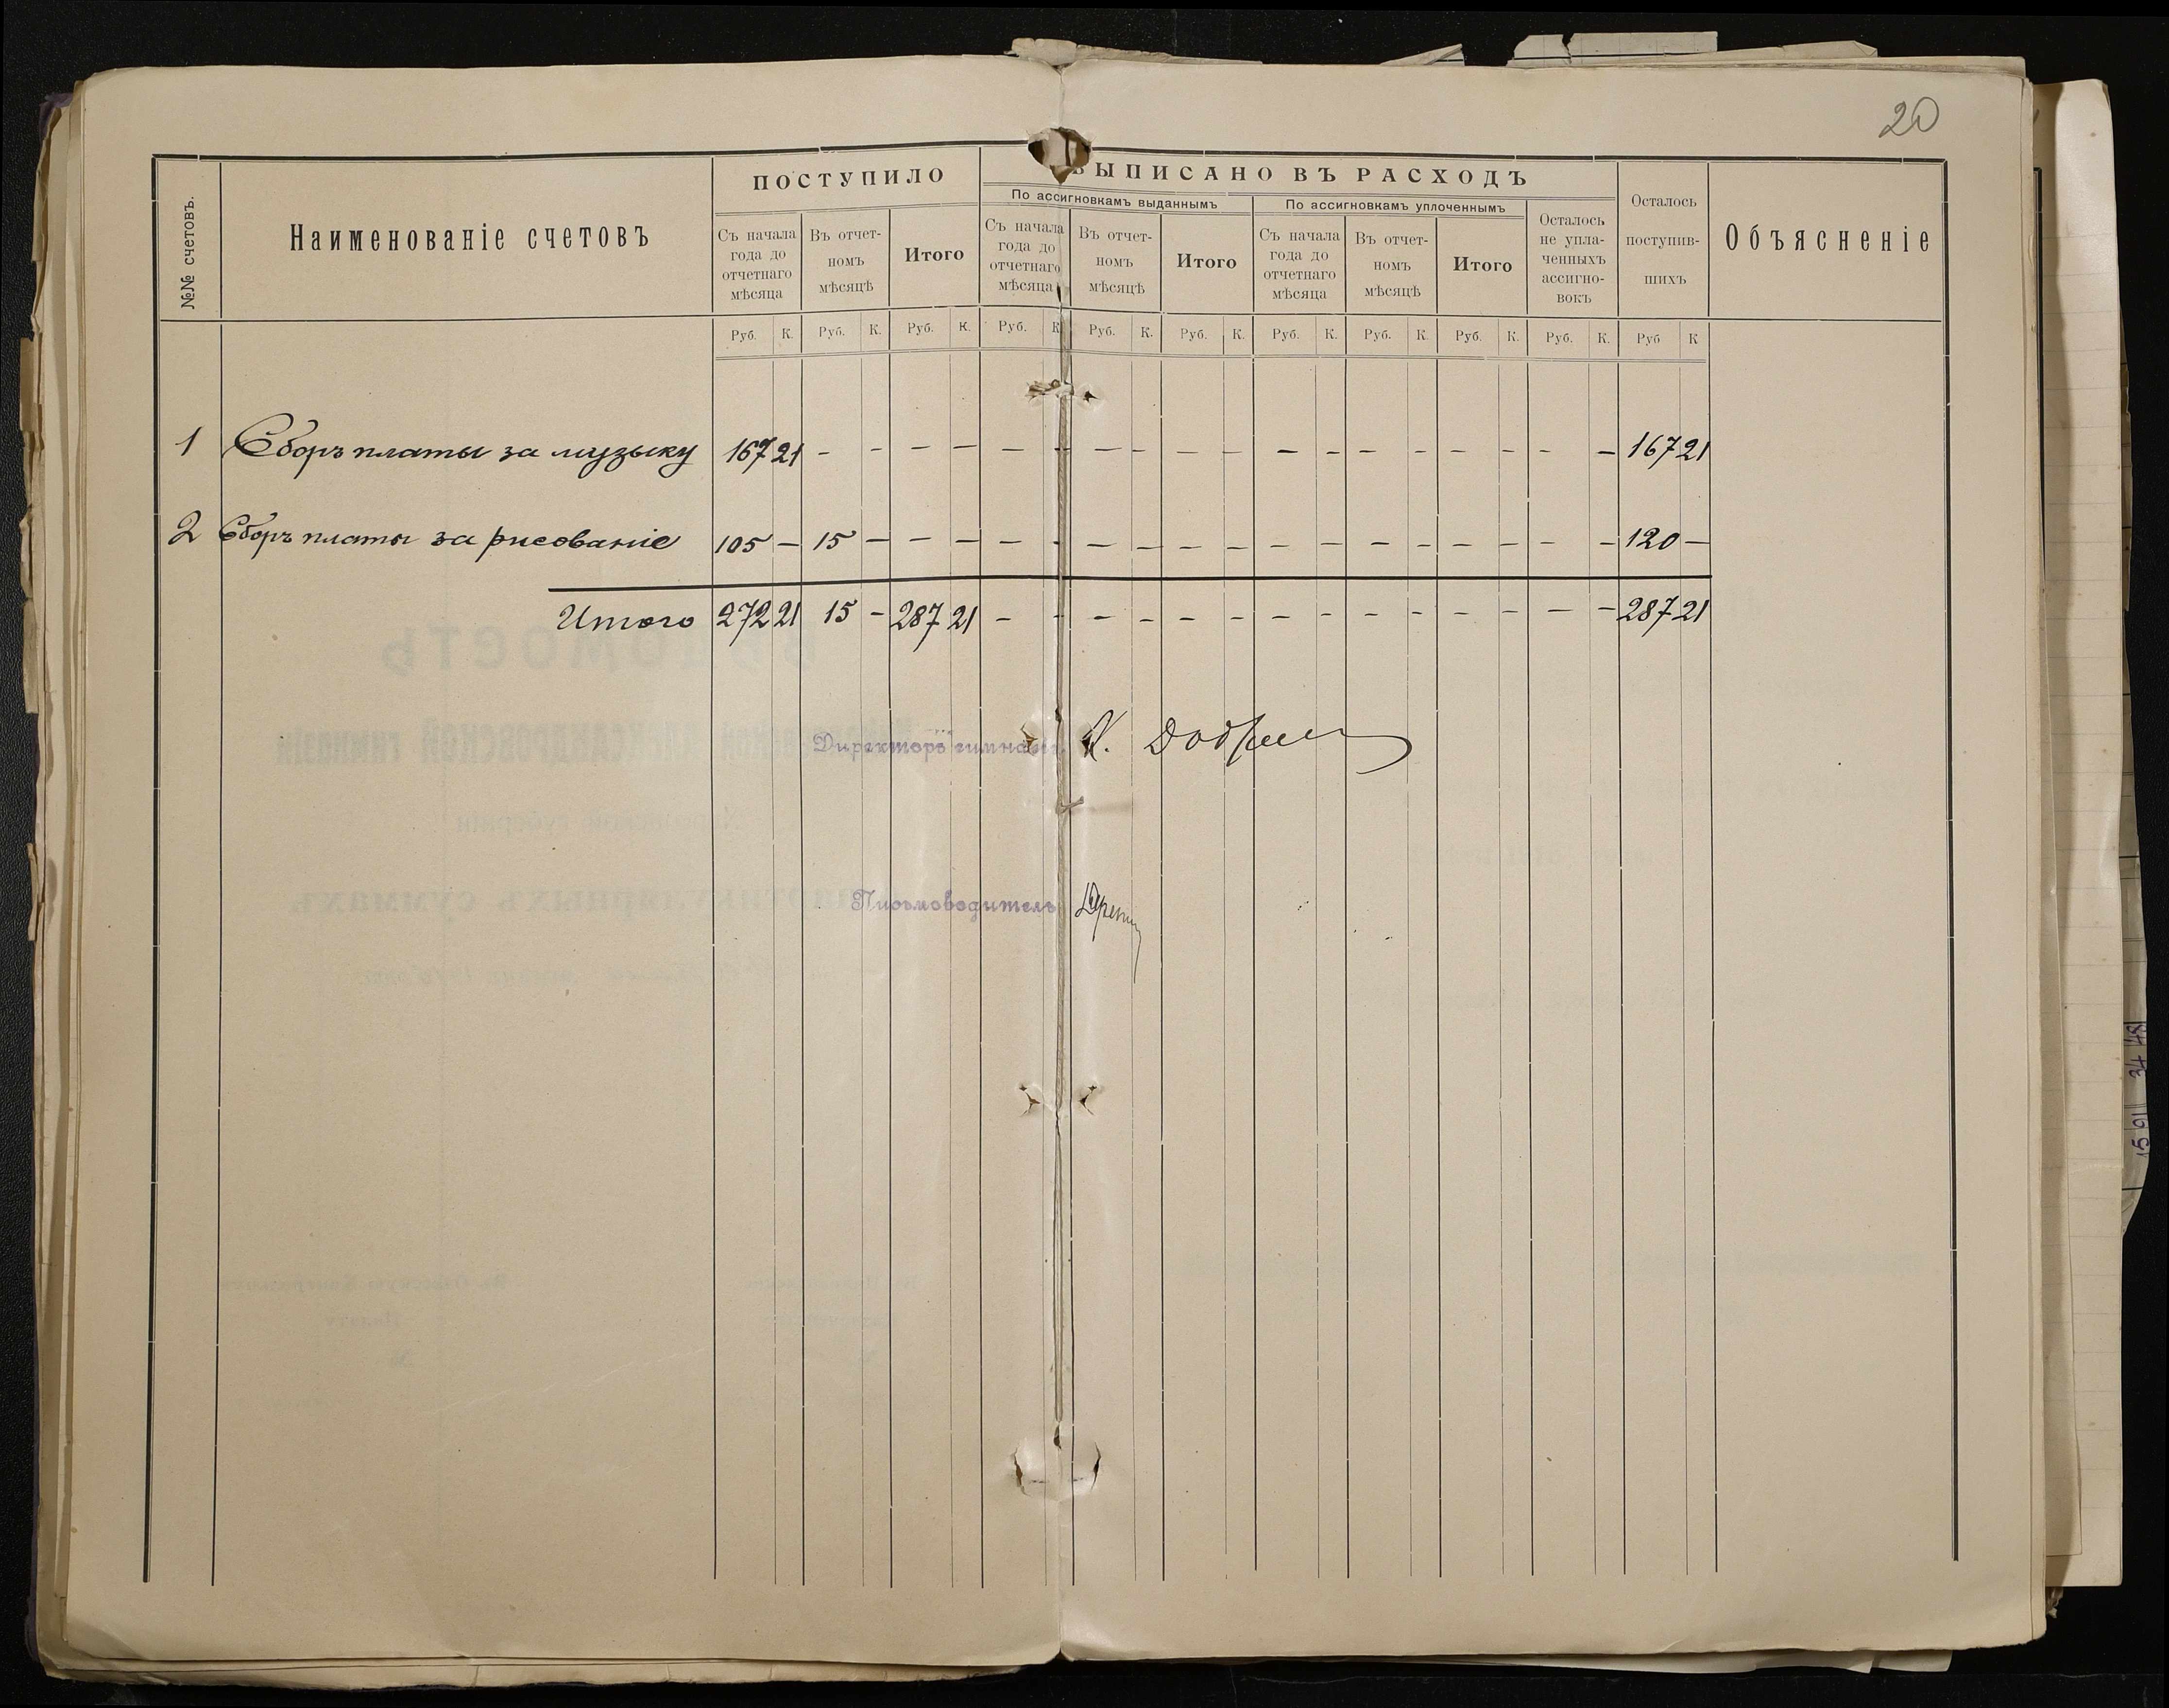 20
№№ счетовъ.
Наименованіе счетовъ
ПОСТУПИЛО
ВЫПИСАНО ВЪ РАСХОДЪ
По ассигновкамъ выданнымъ
По ассигновкамъ уплоченнымъ
Съ начала года до отчетнаго мѣсяца
Въ отчет-номъ мѣсяцѣ
Итого
Съ начала года до отчетнаго мѣсяца
Въ отчет-номъ мѣсяцѣ
Итого
Съ начала года до отчетнаго мѣсяца
Въ отчет-номъ мѣсяцѣ
Итого
Осталось не упла-ченныхъ ассигно-вокъ
Осталось поступив-шихъ
Объясненіе
Руб. К. Руб. К. Руб. К. Руб. К Руб. К. Руб. К. Руб. К. Руб. К. Руб. К. Руб. К. Руб К
1 Сборъ платы за музыку 167 21 - - - - - - - - - - - - - - - - - - 167 21
2 Сборъ платы за рисованіе 105 - 15 - - - - - - - - - - - - - - - - - 120 -
Итого 272 21 15 - 287 21 - - - - - - - - - - - - - - 287 21
Директоръ гимназіи К.
Письмоводитель
ВѢДОМОСТЬ
15 01 34 48